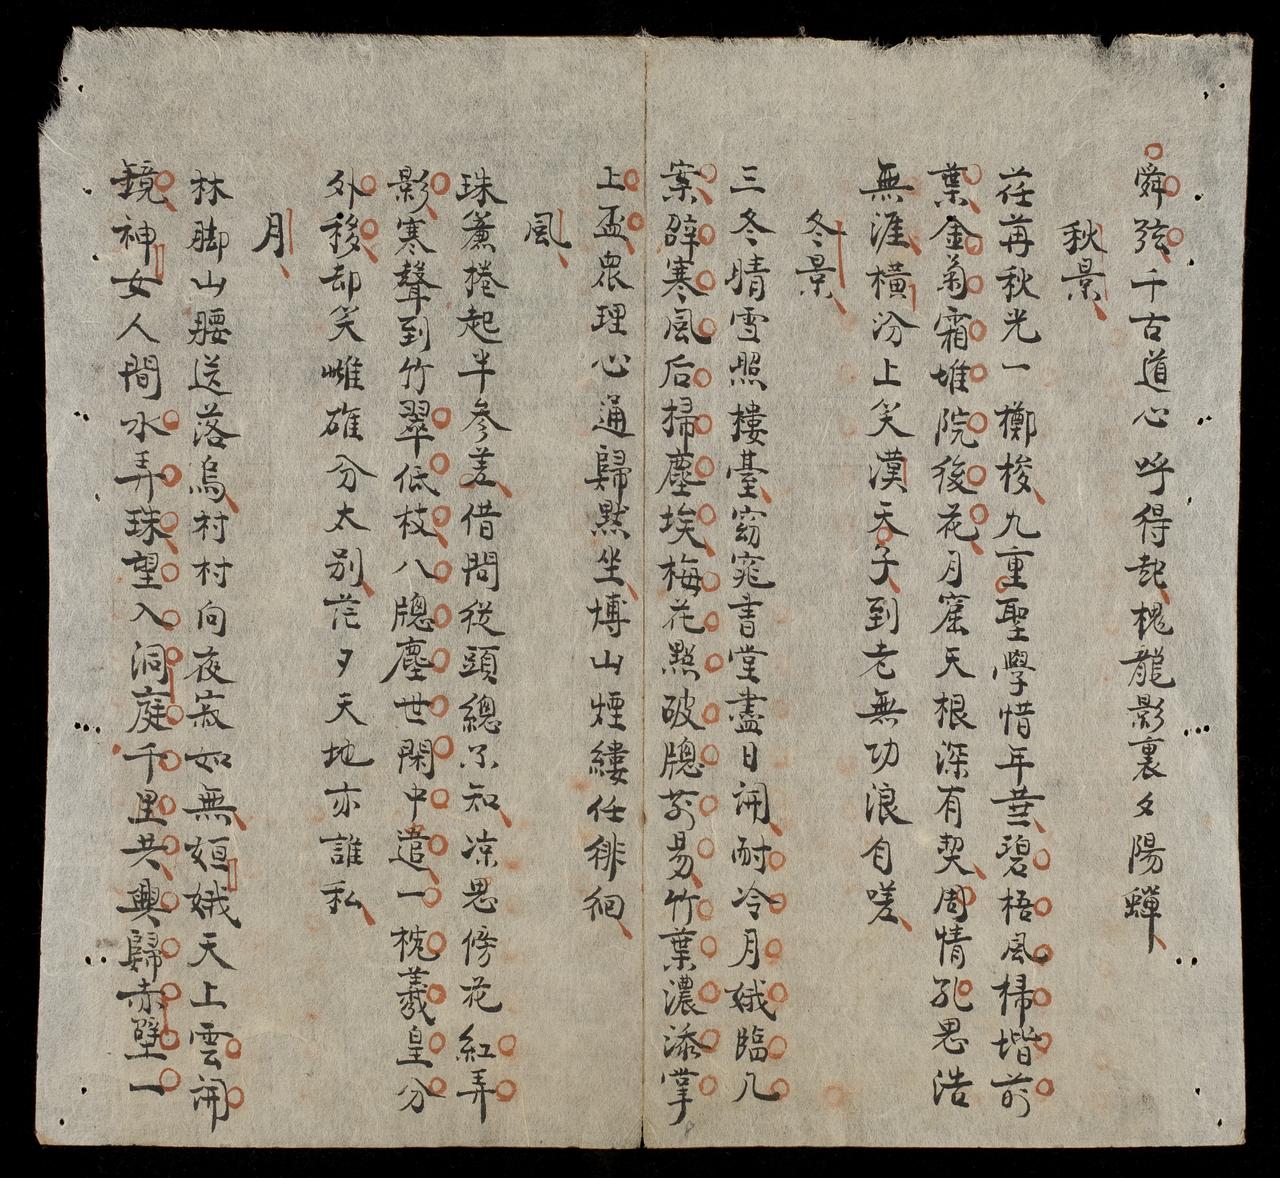 舜弦千古道心呼得起槐龍影裏夕陽蟬
秋景
荏苒秋光一擲梭九重聖學惜年華碧梧風掃堦前
葉金菊霜堆院後花月窟天根深有契周情孔思浩
無涯橫汾上笑漢天子到老無功浪自嗟
冬景
三冬晴雪照樓臺窈窕書堂盡日開耐冷月娥臨几
案辟寒風后掃塵埃梅花點破牕前易竹葉濃添掌
上盃衆理心通歸默坐博山煙縷任徘徊
風
珠簾捲起半參差借問從頭總不知凉思傍花紅弄
影寒聲到竹翠低枝八牕塵世閑中遣一枕羲皇分
外移却笑雌雄分太別茫々天地亦誰私
月
林脚山腰送落烏村村向夜寂如無姮娥天上雲開
鏡神女人間水弄珠望入洞庭千里共興歸赤壁一